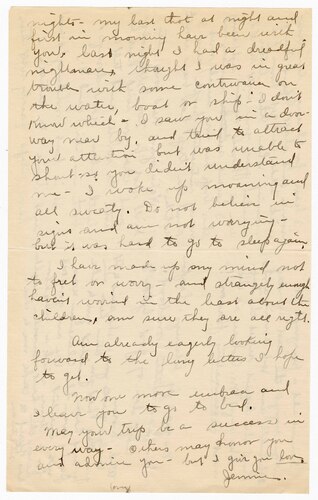 nights - my last thot at night and
first in morning have been with
you. Last night I had a dreadful
nightmare, thought I was in great
trouble with some contrivance on
the water, boat or ship - I don't
know which - I saw you in a door-
way near by, and tried to attract
your attention but was unable to
shout as you didn't understand
me - I woke up moaning and
all sweaty. Do not believe in
signs and am not worrying -
but it was hard to go to sleep again.
I have made up my mind not
to fret or worry - and strangely enough
haven't worried in the least about the
children, am sure they are all right.
Am already eagerly looking
forward to the long letters I hope
to get.
Now one more embrace and
I leave you to go to bed.
May your trip be a success in
every way - Others may honor you
and admire you - but I give you love
Jennie.